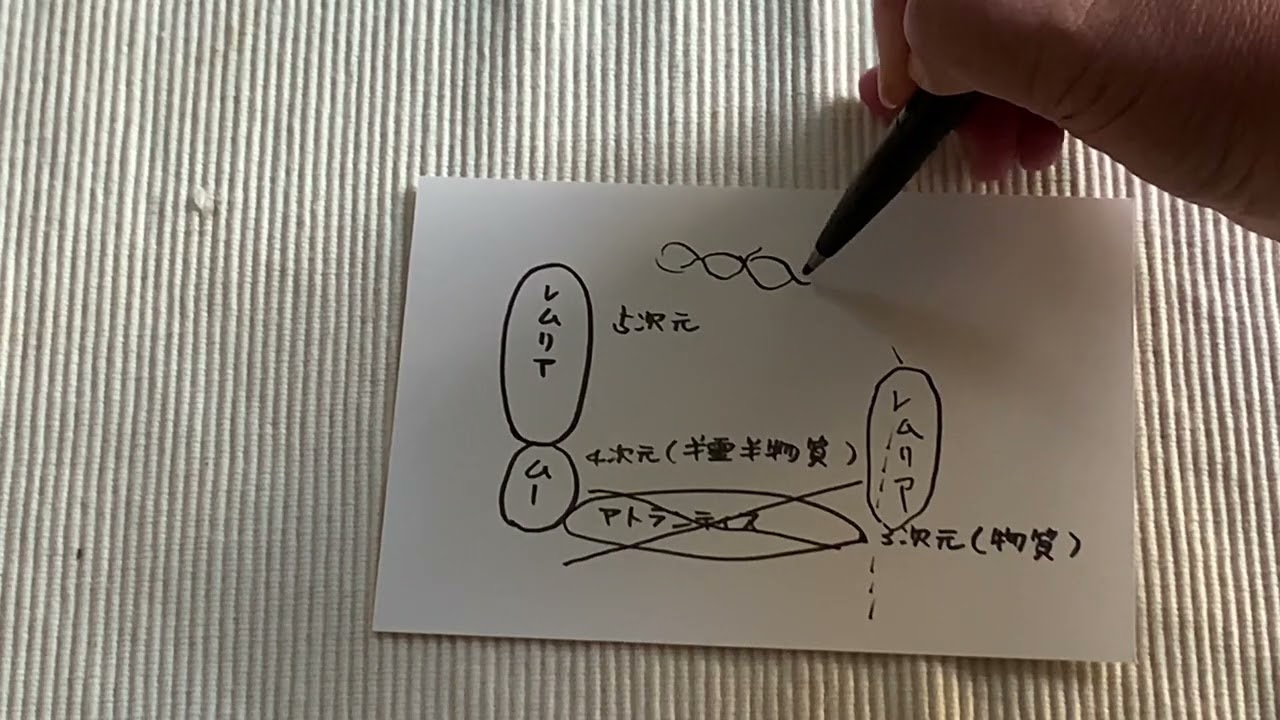 レムリア
5次元
ムー
4次元(半霊半物質)
アトランティス
レムリア
3次元(物質)